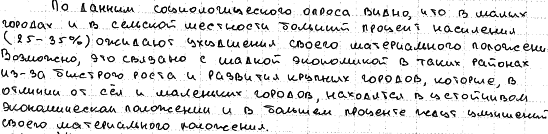 По данным социологического опроса видно, что в малых
городах и в сельской местности больший процент населения
(25-35%) ожидают ухудшения своего материального положени
Возможно, это связано с шаткой экономикой в таких районах
из-за быстрого роста и развития крупных городов, которые, в
отличии от сёл и маленьких городов, находятся в устойчивом
экономическом положении и в большем проценте ждут улучшений
своего материального положения.